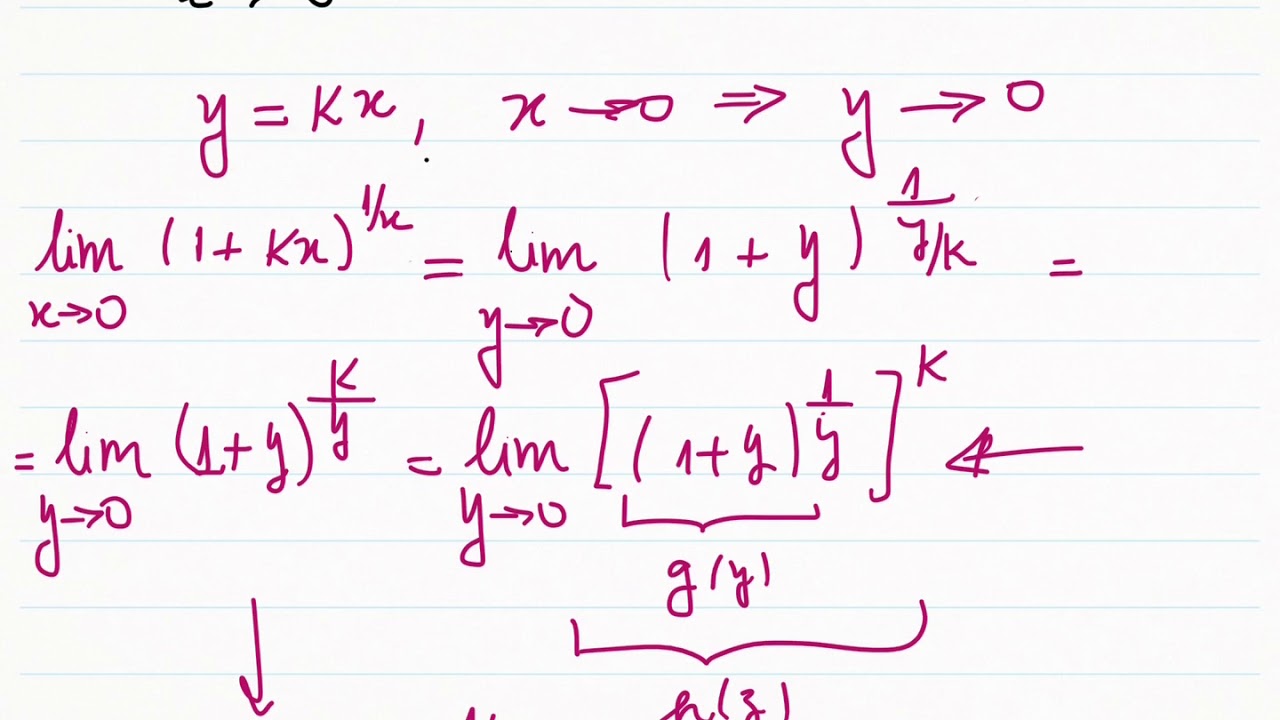 y = kx, x → 0 ⇒ y → 0
lim x→0 (1 + kx)^1/x = lim y→0 (1 + y)^1/(y/k) =
= lim y→0 (1+y)^k/y = lim y→0 [(1+y)^1/y]^k ←
g(y)
h(z)